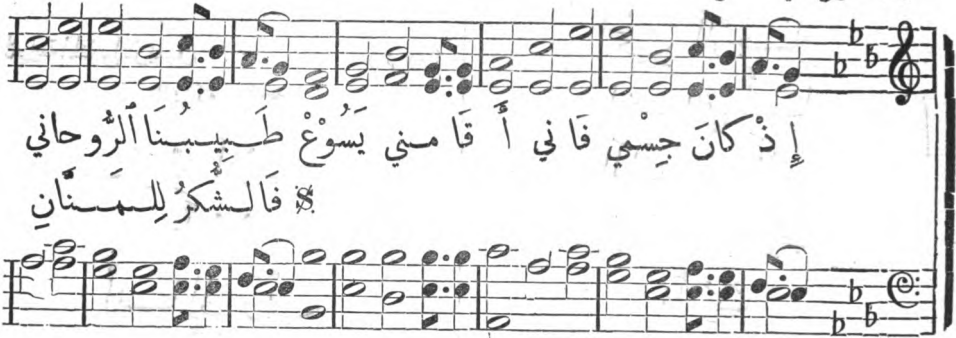 إِذْ كانَ جِسْمِي فَا ني أَ قَا مـني يَسُوْعْ طَـبِيـبُـنَا ٱلرُّوحاني
𝄋 فَالـشُّكرُ لِلـمَـنَّانِ